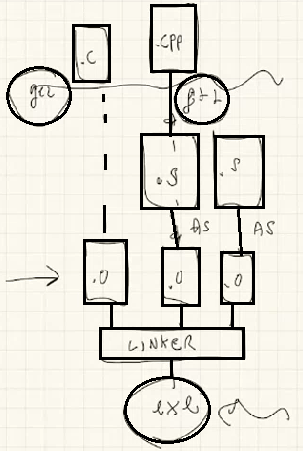 .C
.CPP
gcc
g++
.S
.S
AS
AS
.O
.O
.O
LINKER
exe